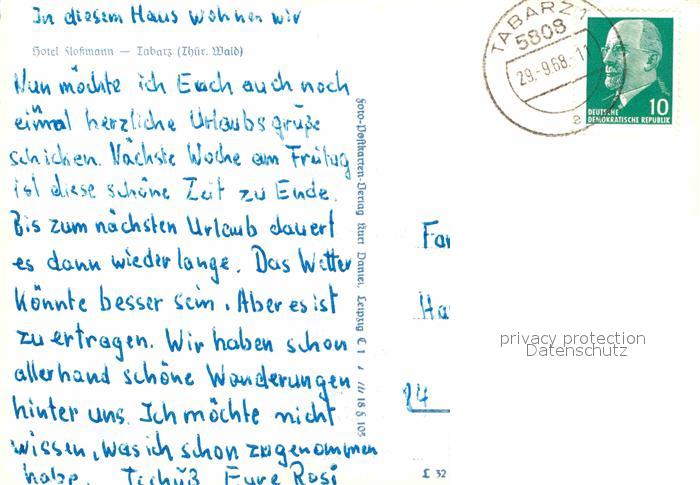 In diesem Haus wohnen wir
Hotel Floßmann — Tabarz (Thür. Wald)
Nun möchte ich Euch auch noch
einmal herzliche Urlaubsgrüße
schicken. Nächste Woche am Freitag
ist diese schöne Zeit zu Ende.
Bis zum nächsten Urlaub dauert
es dann wieder lange. Das Wetter
könnte besser sein. Aber es ist
zu ertragen. Wir haben schon
allerhand schöne Wanderungen
hinter uns. Ich möchte nicht
wissen, was ich schon zugenommen
habe. Tschüß Eure Rosi
Foto-Postkarten-Verlag Kurt Daniel, Leipzig C 1
III 18 § 105
L 32
TABARZ 1
5808
29.-9.68.-11
a
DEUTSCHE
DEMOKRATISCHE REPUBLIK
10
Fa
Ha
24
privacy protection
Datenschutz